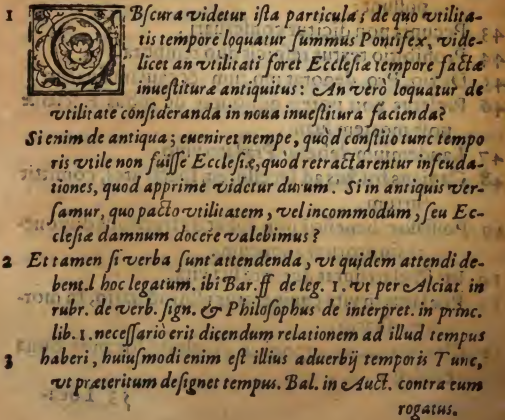 1 OBſcura videtur iſta particula; de quo vtilita-
tis tempore loquatur ſummus Pontifex, vide-
licet an vtilitati foret Eccleſiæ tempore factæ
inueſtituræ antiquitus: An verò loquatur de
vtilitate conſideranda in noua inueſtitura facienda?
Si enim de antiqua; eueniret nempe, quòd conſtito tunc tempo
ris vtile non fuiſſe Eccleſiæ, quòd retractarentur infeuda-
tiones, quod apprime videtur durum. Si in antiquis ver-
ſamur, quo pacto vtilitatem, vel incommodùm, ſeu Ec-
cleſiæ damnum docere valebimus?
2 Et tamen ſi verba ſunt attendenda, vt quidem attendi de-
bent. l hoc legatum. ibi Bar. ff de leg. 1. vt per Alciat. in
rubr. de verb. ſign. & Philoſophus de interpret. in princ.
lib. 1. neceſſariò erit dicendum relationem ad illud tempus
3 haberi, huiuſmodi enim eſt illius aduerbij temporis Tunc,
vt præteritum deſignet tempus. Bal. in Auct. contra eum
rogatus.